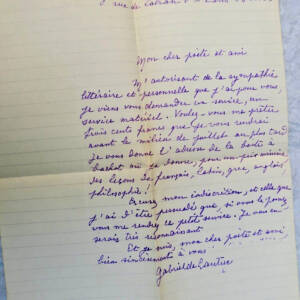 rue de
Mon cher poète et ami
M'autorisant de la sympathie
littéraire et personnelle que j'ai pour vous,
je viens vous demander un service, un
service matériel. Voulez-vous me prêter
trois cents francs que je vous rendrai
avant le milieu de juillet au plus tard
Je vous donne l'adresse de la boîte à
bachot où je donne, pour un prix minime
des leçons de français, latin, grec, anglais,
philosophie!
Excusez mon indiscrétion, et celle que
j'ai d'être persuadé que, si vous le pouvez,
vous me rendrez ce petit service. Je vous en
serais très reconnaissant
Et je suis, mon cher poète et ami,
bien sincèrement à vous
Gabriel de Lautrec